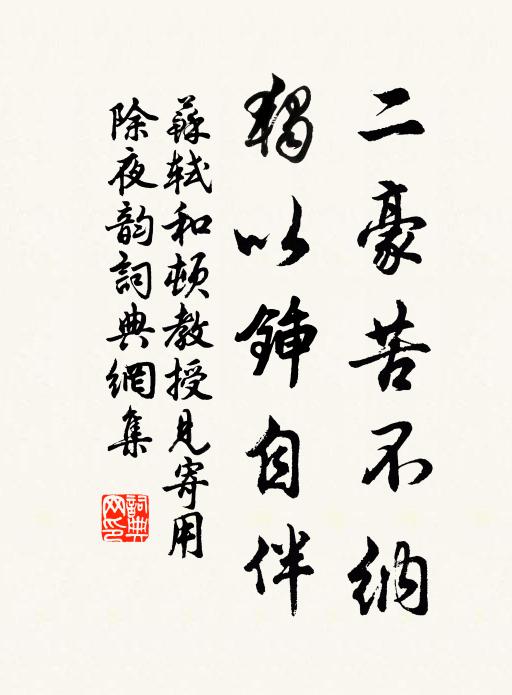 二豪苦不納
獨以鍤自伴
蘇軾和頓教授見寄用
除夜韵詞典網集
詞典
网印